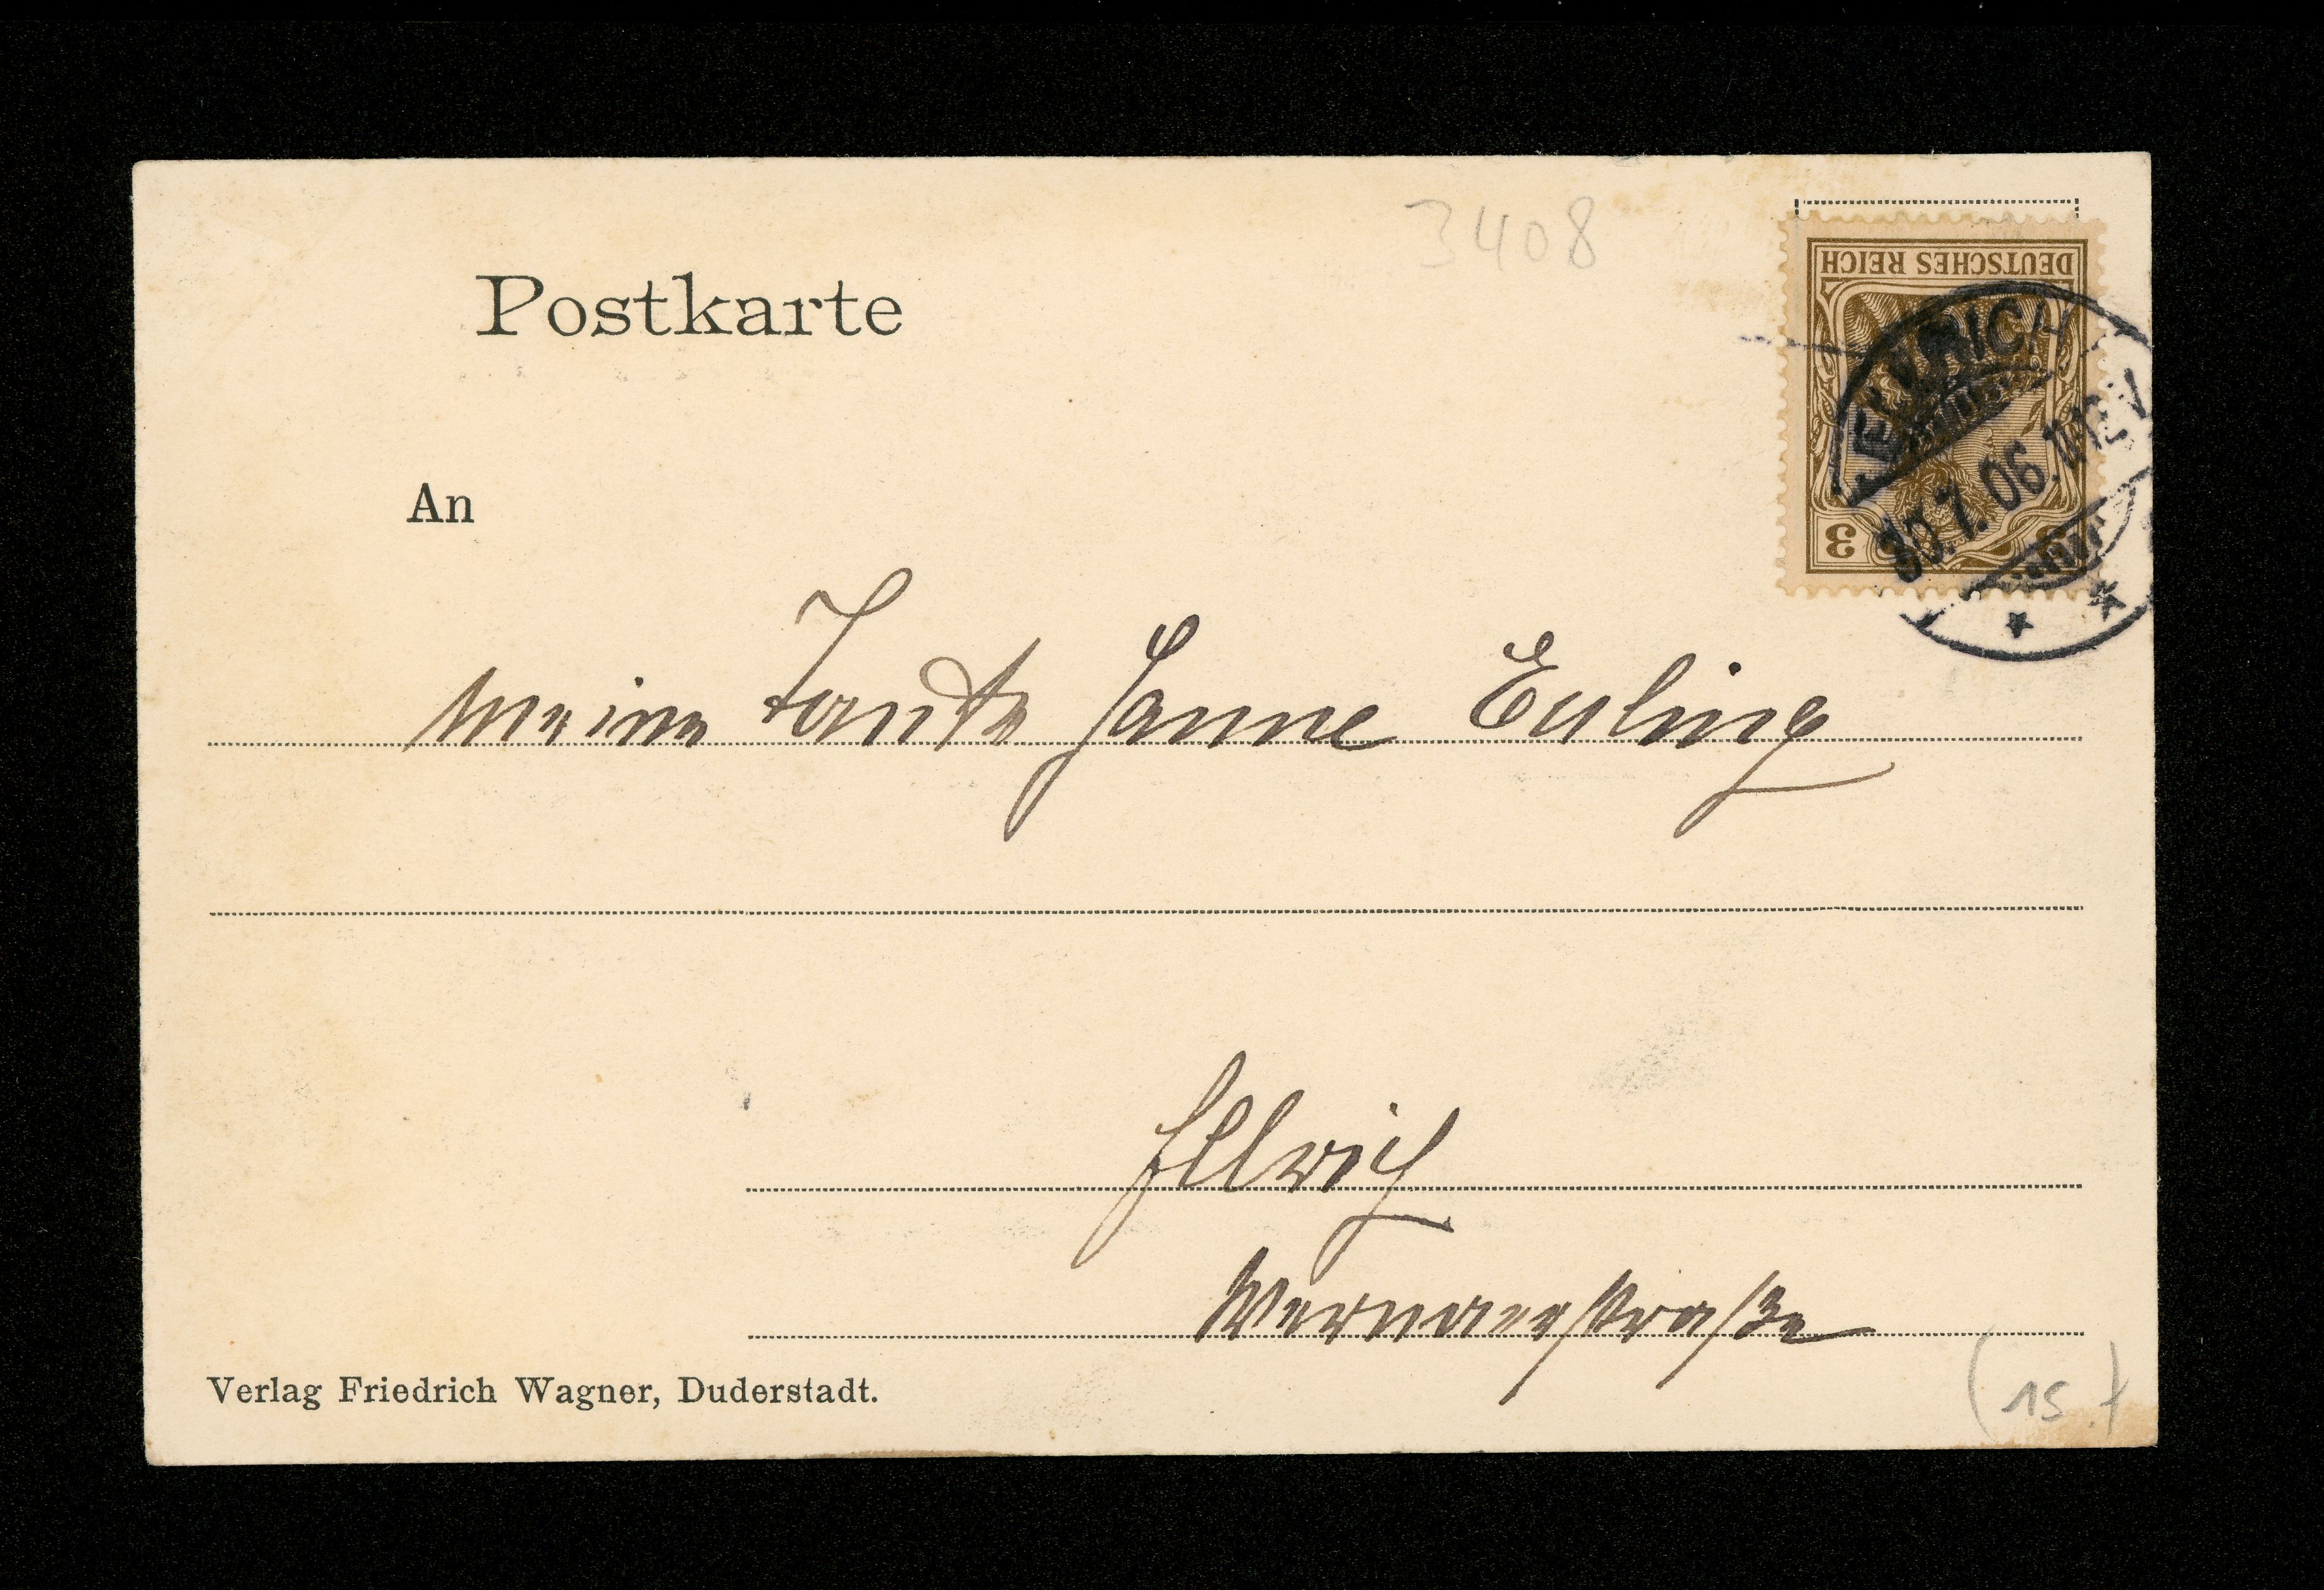 3408
Postkarte
DEUTSCHES REICH
ELLRICH
30.7.06. 11-12 V
3 3
An
meine Tante Janne Euling
Ellrich
Wernaerstraße
Verlag Friedrich Wagner, Duderstadt.
(15.)